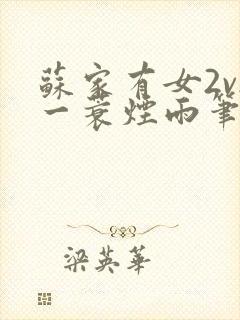 蘇家有女2v
一蓑煙雨筆
梁英華